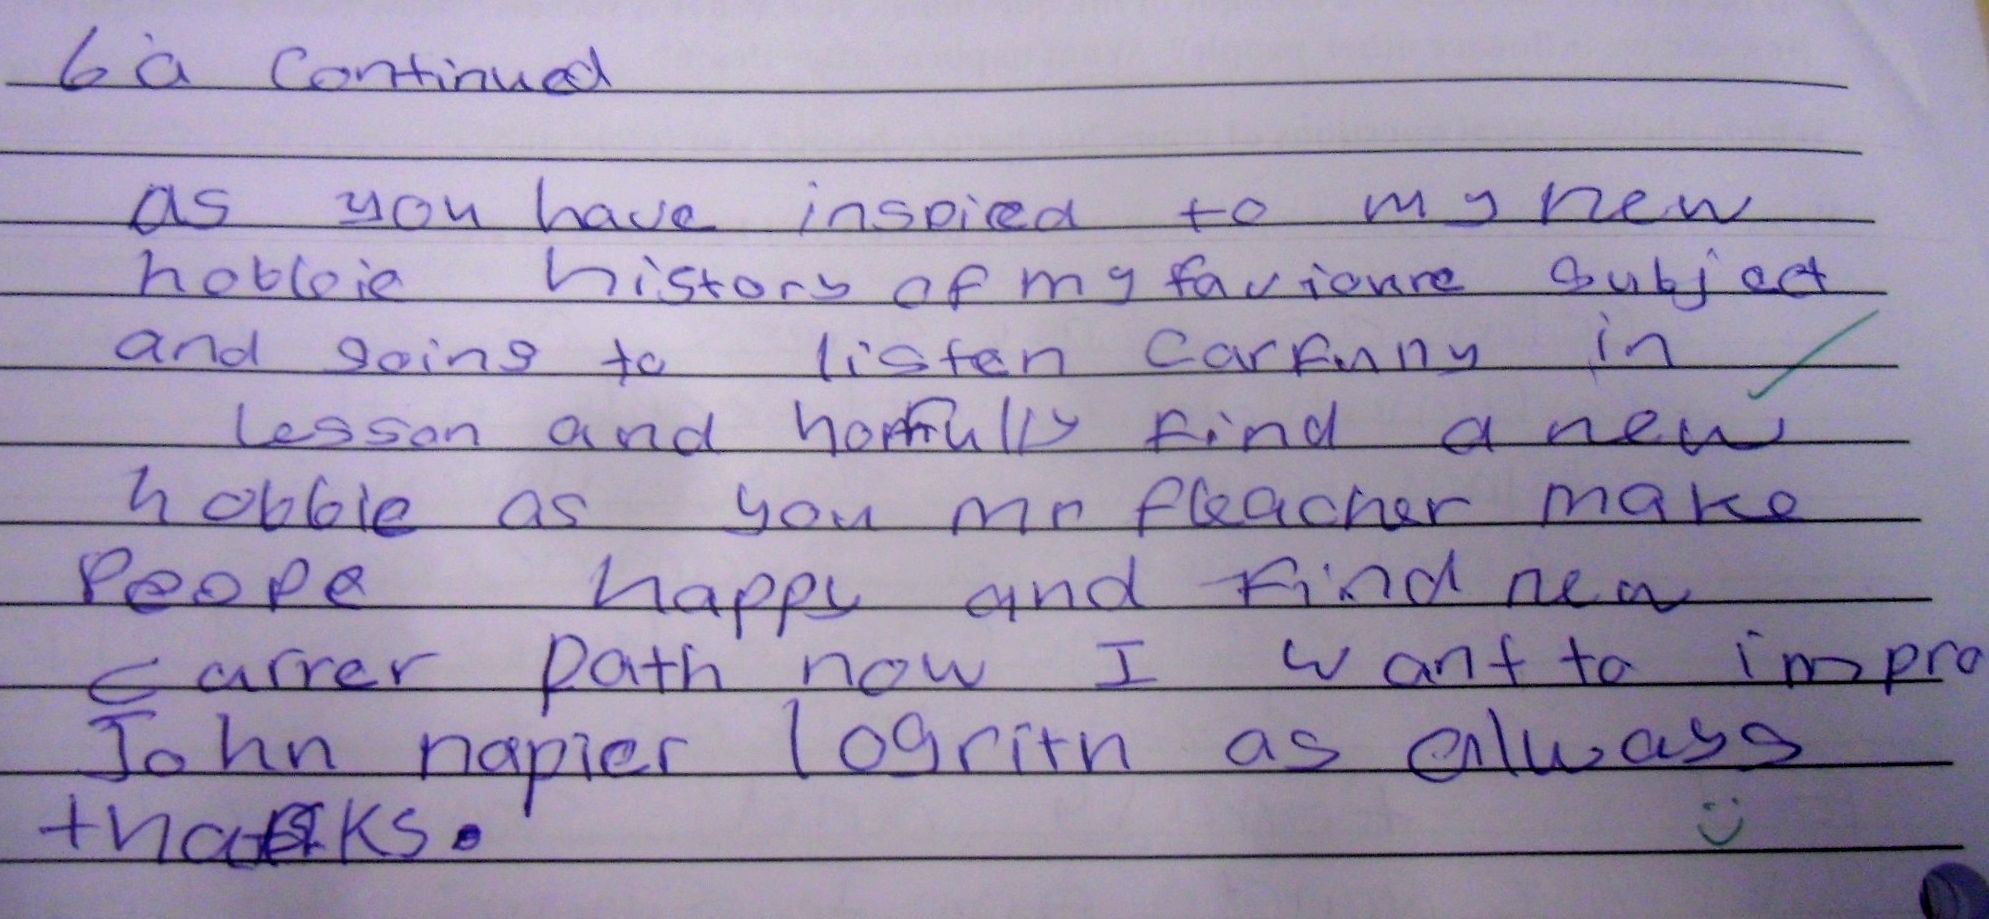 6a Continued
as you have inspired to my new
hobbie history of my favioure subject
and going to listen Carfully in
Lesson and hopfully find a new
hobbie as you mr fleacher make
Peope happy and find new
carrer path now I want to impro
John napier logrith as always
thanks.